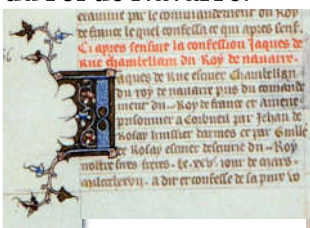 examine par le commandement du Roy
de france le quel confessa ce qui apres sens.
Ci apres sensuit la confession Jaques de
Rue chambellam du Roy de nauarre.
Jaques de Rue escuier Chambellan
du roy de nauarre pris du comande
ment du Roy de france et amene
prisonnier a Corbueil par Jehan de
Rosay huissier darmes et par Guille
de Rosay escuier descuirie du Roy
nostre sires freres. le. xxv. iour de mars.
mil ccc lxxvii. a dit et confesse de sa pure vo